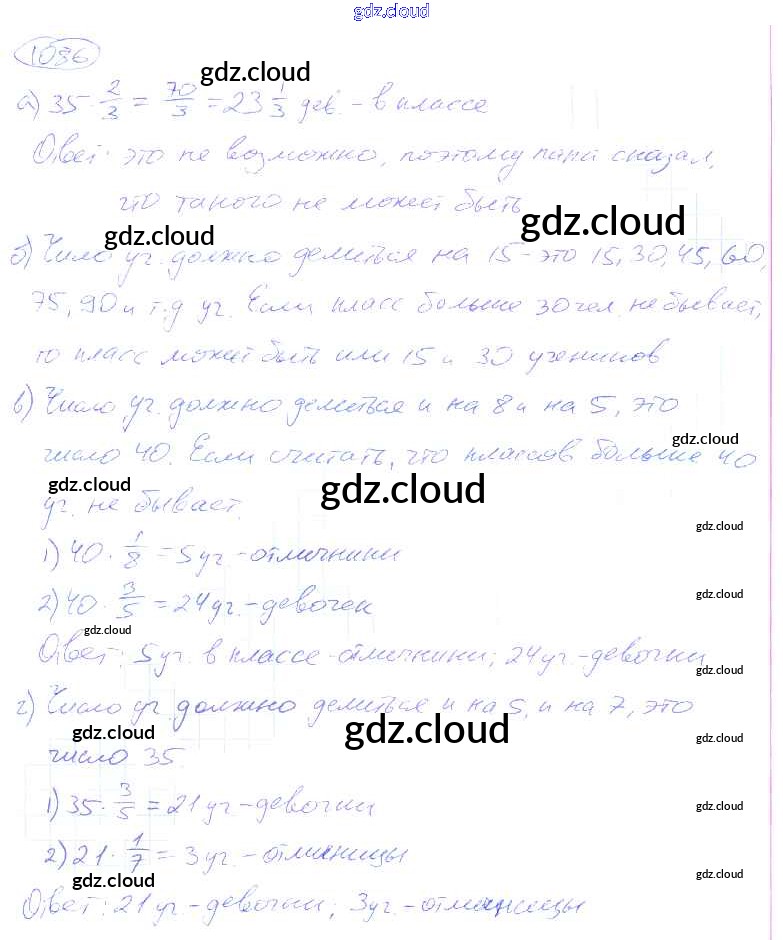 gdz.cloud
1086
gdz.cloud
а) 35 · 2/3 = 70/3 = 23 1/3 дев. - в классе
Ответ: это не возможно, поэтому папа сказал,
что такого не может быть
gdz.cloud
gdz.cloud
б) Число уч. должно делиться на 15 - это 15, 30, 45, 60,
75, 90 и т.д уч. Если класс больше 30 чел. не бывает,
то класс может быть или 15 и 30 учеников
в) Число уч. должно делиться и на 8 и на 5, это
gdz.cloud
число 40. Если считать, что классов больше 40
gdz.cloud gdz.cloud
уч. не бывает.
gdz.cloud
1) 40 · 1/8 = 5 уч. - отличники
gdz.cloud
2) 40 · 3/5 = 24 уч. - девочек
gdz.cloud
Ответ: 5 уч. в классе - отличники; 24 уч. - девочки
gdz.cloud
г) Число уч. должно делиться и на 5, и на 7, это
gdz.cloud gdz.cloud gdz.cloud
число 35.
1) 35 · 3/5 = 21 уч - девочки
gdz.cloud
2) 21 · 1/7 = 3 уч. - отличницы
gdz.cloud gdz.cloud
Ответ: 21 уч. - девочки; 3 уч. - отличницы